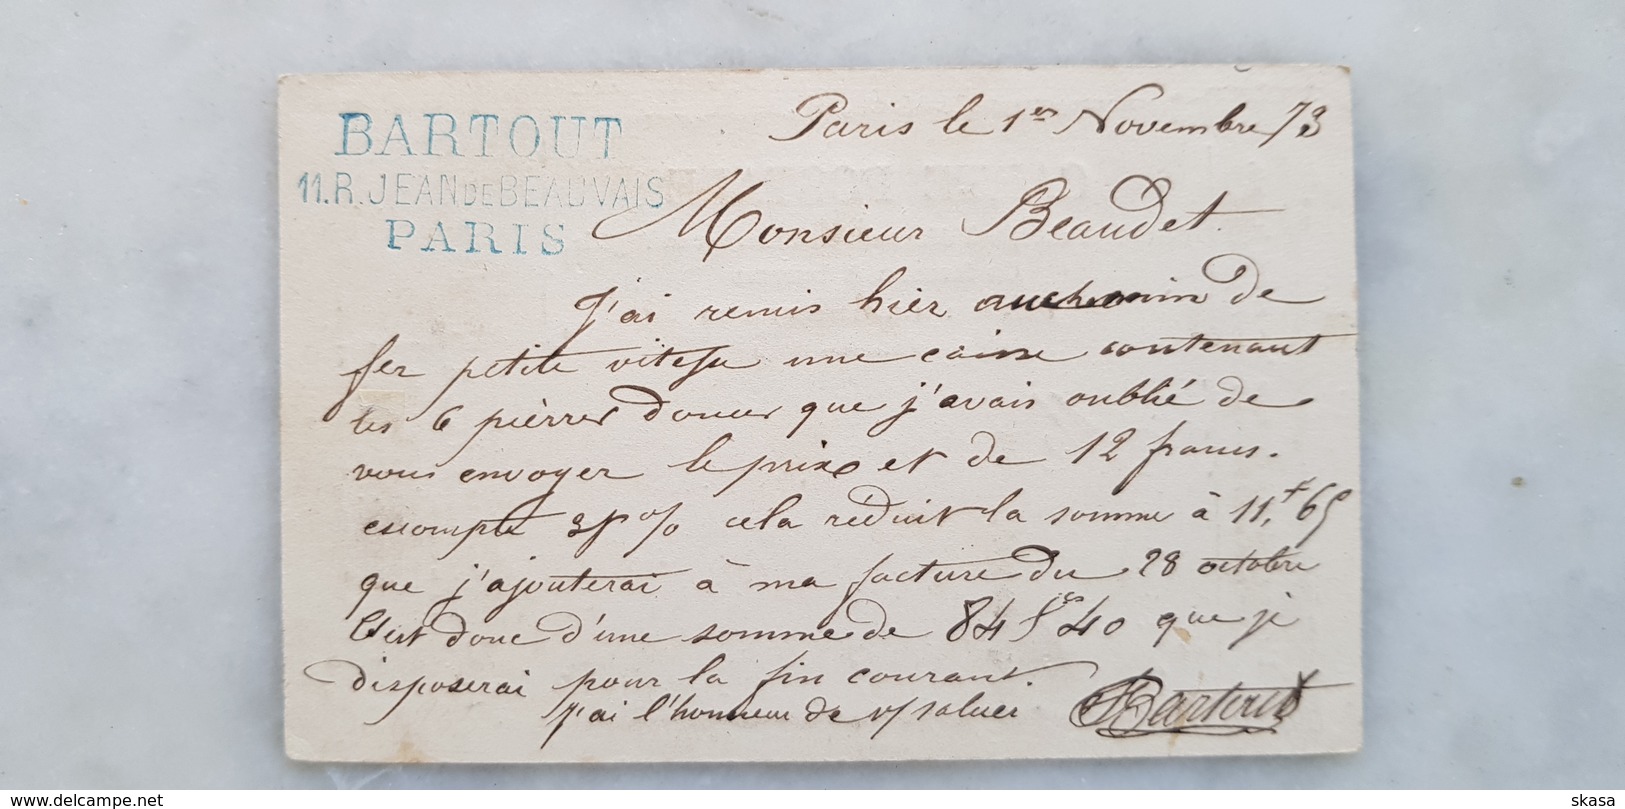 BARTOUT
11.R.JEAN DE BEAUVAIS
PARIS
Paris le 1er Novembre 73
Monsieur Beaudet.
J'ai remis hier au chemin de
fer petite vitesse une caisse contenant
les 6 pièrres douces que j'avais oublié de
vous envoyer le prix et de 12 francs.
escompte 3 % cela réduit la somme à 11,f 65
que j'ajouterai à ma facture du 28 octobre
C'est donc d'une somme de 84 fcs 40 que je
disposerai pour la fin courant.
j'ai l'honneur de v/ saluer Bartout
www.delcampe.net
skasa